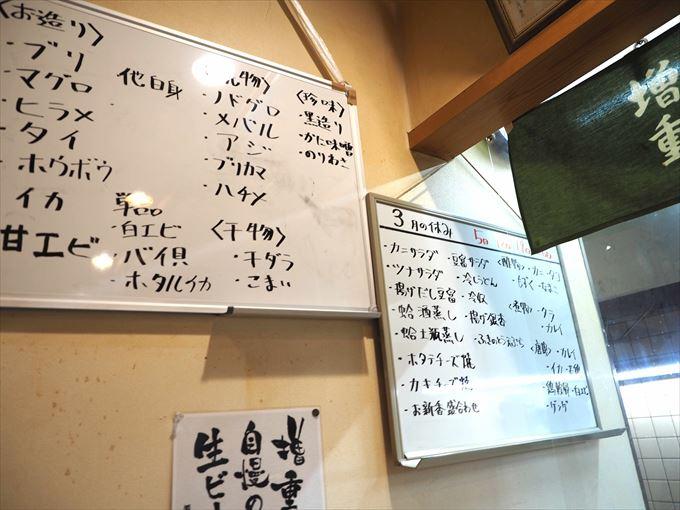 〈お造り〉
・ブリ
・マグロ
・ヒラメ
・タイ
・ホウボウ
イカ
甘エビ
他白身
単品
・白エビ
・バイ貝
・ホタルイカ
物〉
・ノドグロ
・メバル
・アジ
・ブリカマ
・ハチメ
〈干物〉
・干ダラ
・こまい
〈珍味〉
・黒造り
・かた味噌
・のりわさ
3月の休み
5日
・カニサラダ
・ツナサラダ
・揚げだし豆腐
・蛤酒蒸し
・蛤土瓶蒸し
・ホタテチーズ焼
・カキチーズ焼
・お新香盛合わせ
・豆腐サラダ
・冷しうどん
・冷奴
・揚げ銀杏
・カニ
・もずく
・タラ
・カレイ
・カレイ
・イカ
・ゲソ
増重
増重
自慢の
生ビー